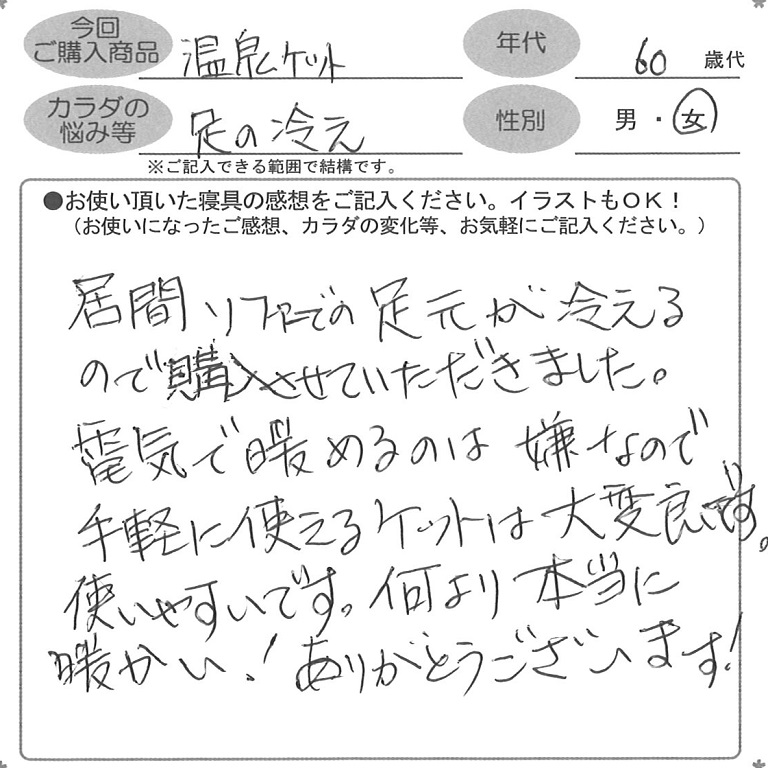 今回
ご購入商品 温泉ケット 年代 60 歳代
カラダの
悩み等 足の冷え 性別 男・女
※ご記入できる範囲で結構です。
●お使い頂いた寝具の感想をご記入ください。イラストもOK!
(お使いになったご感想、カラダの変化等、お気軽にご記入ください。)
居間ソファーでの足元が冷える
ので購入させていただきました。
電気で暖めるのは嫌なので
手軽に使えるケットは大変良いです。
使いやすいです。何より本当に
暖かい!ありがとうございます!